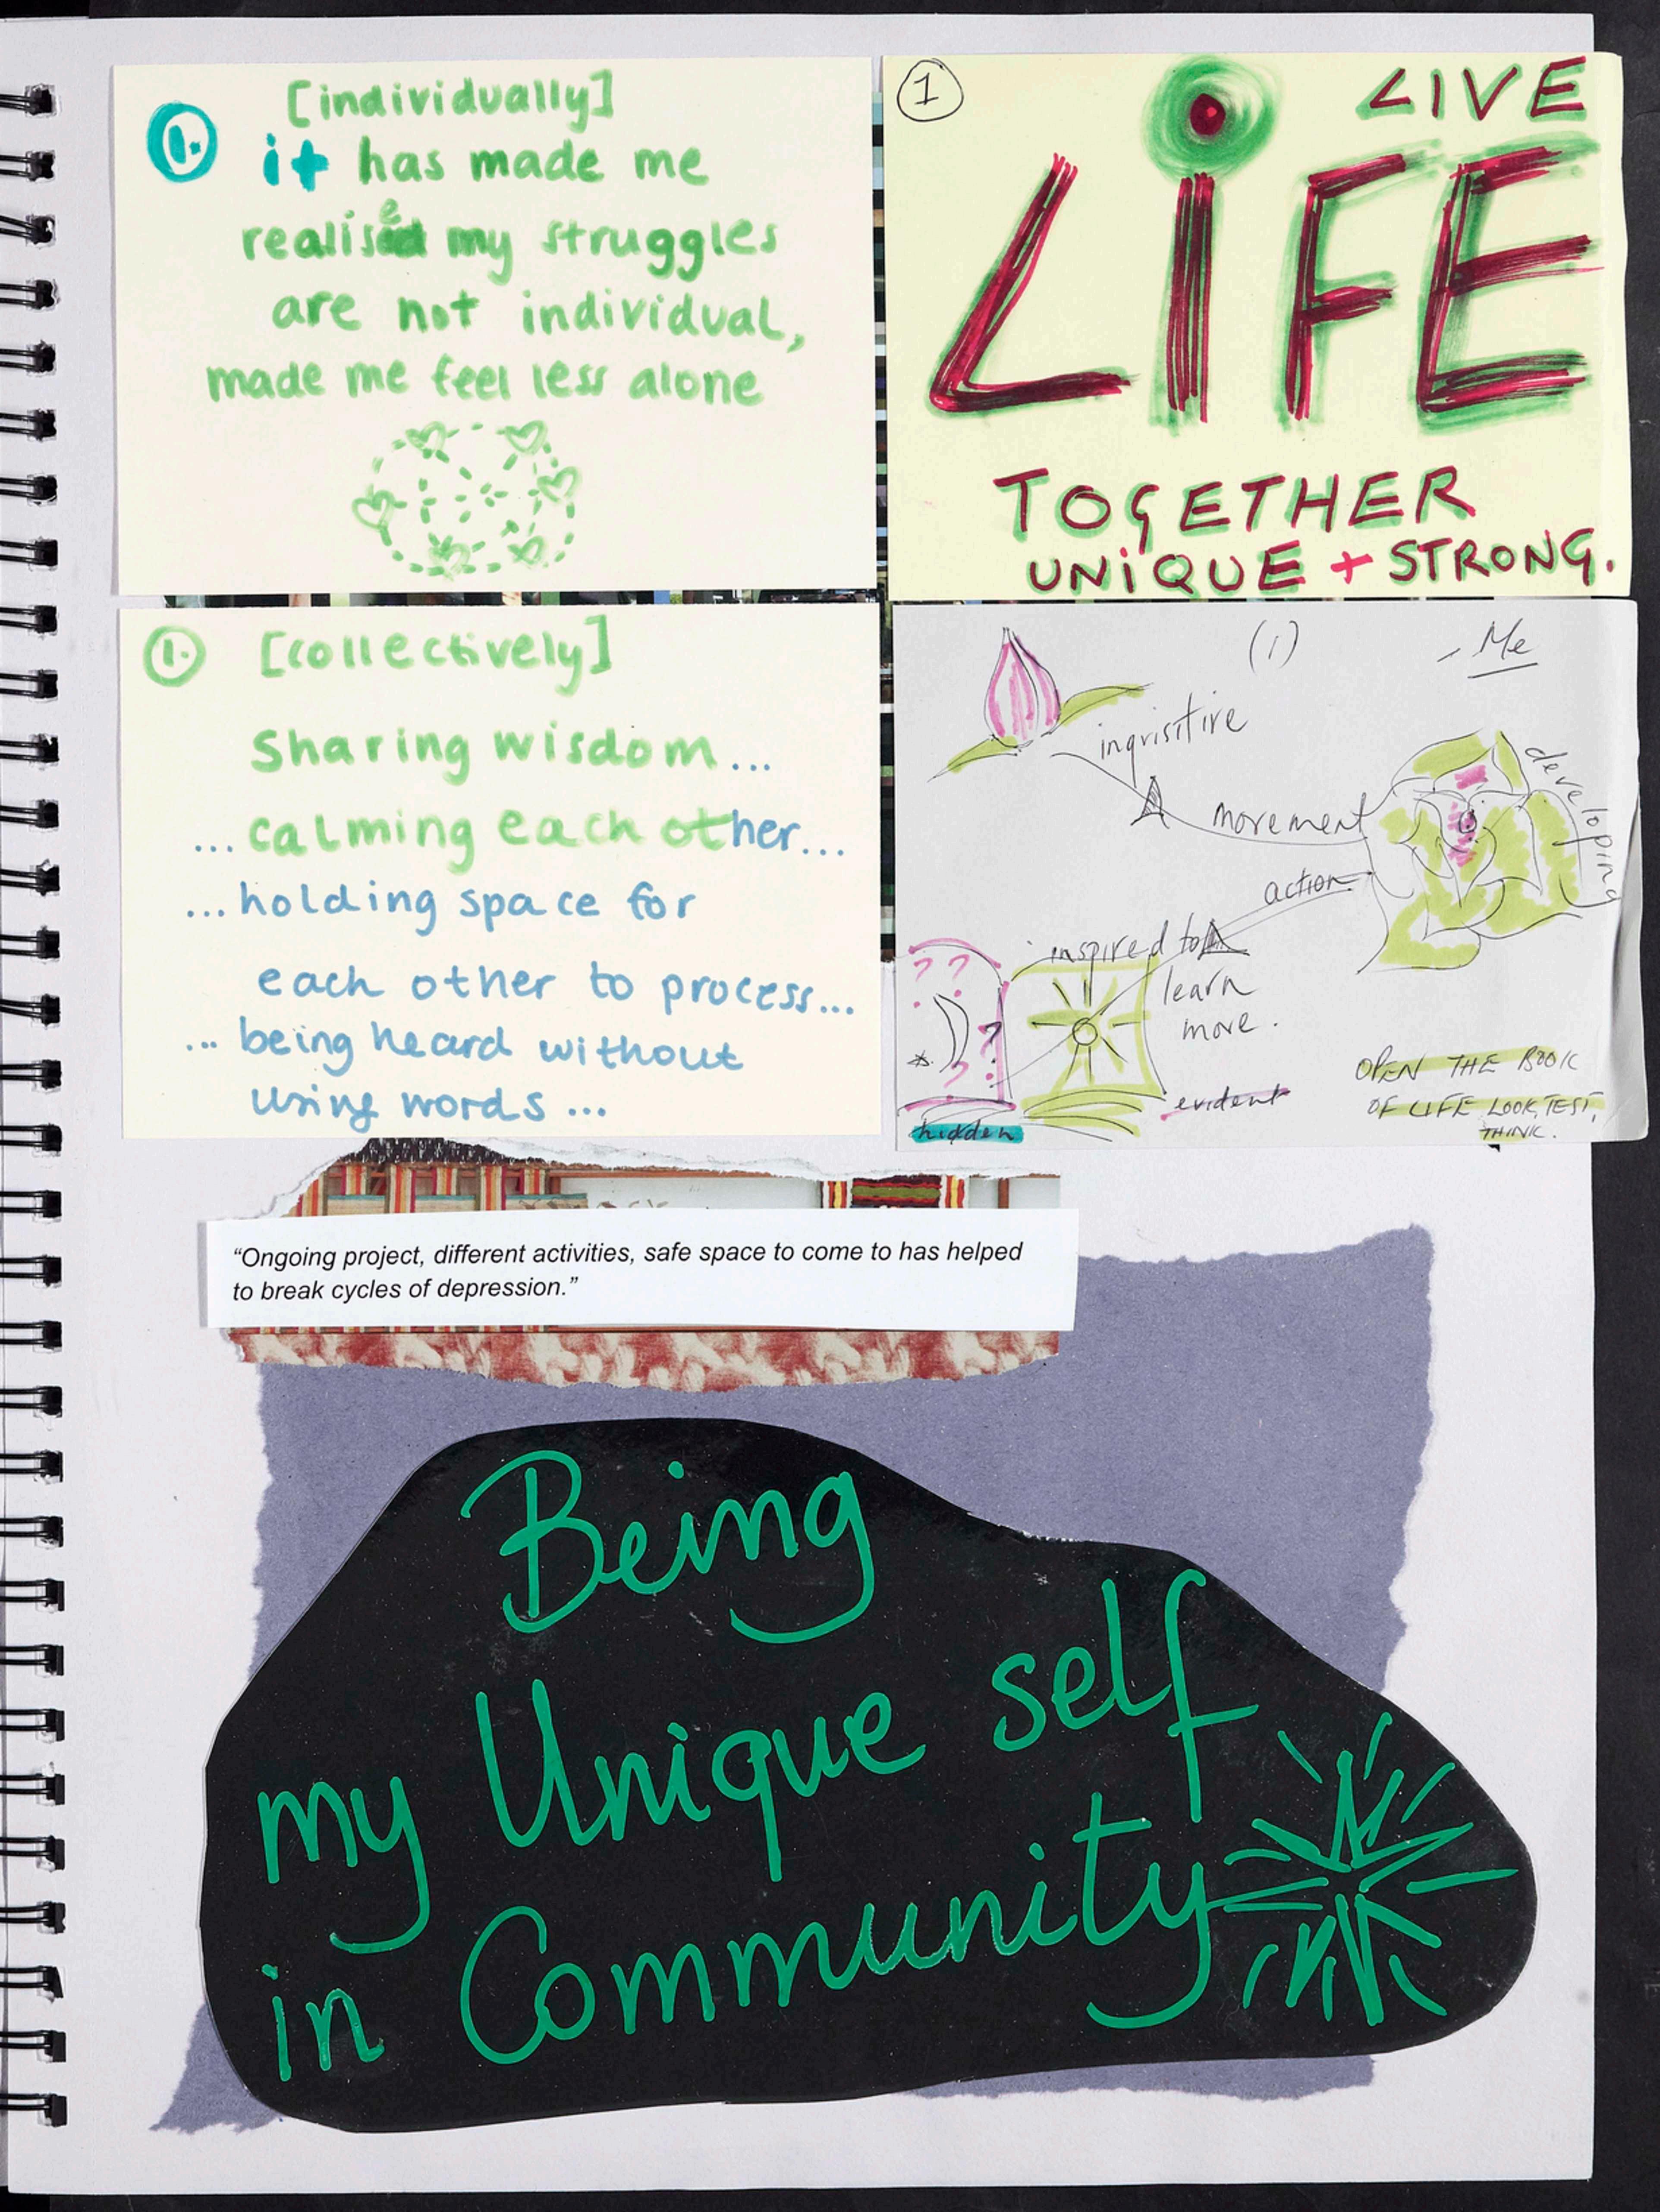 [individually]
1. it has made me
realise my struggles
are not individual,
made me feel less alone
1
LIVE
LiFE
TOGETHER
UNiQUE + STRONG.
1. [collectively]
Sharing wisdom...
...calming each other...
...holding space for
each other to process...
... being heard without
using words ...
(1) - Me
inquisitive
movement
developing
action
inspired to
learn
more.
? ?
?
?
evident
hidden
OPEN THE BOOK
OF LIFE LOOK, TEST,
THINK.
“Ongoing project, different activities, safe space to come to has helped
to break cycles of depression.”
Being
my Unique self
in Community